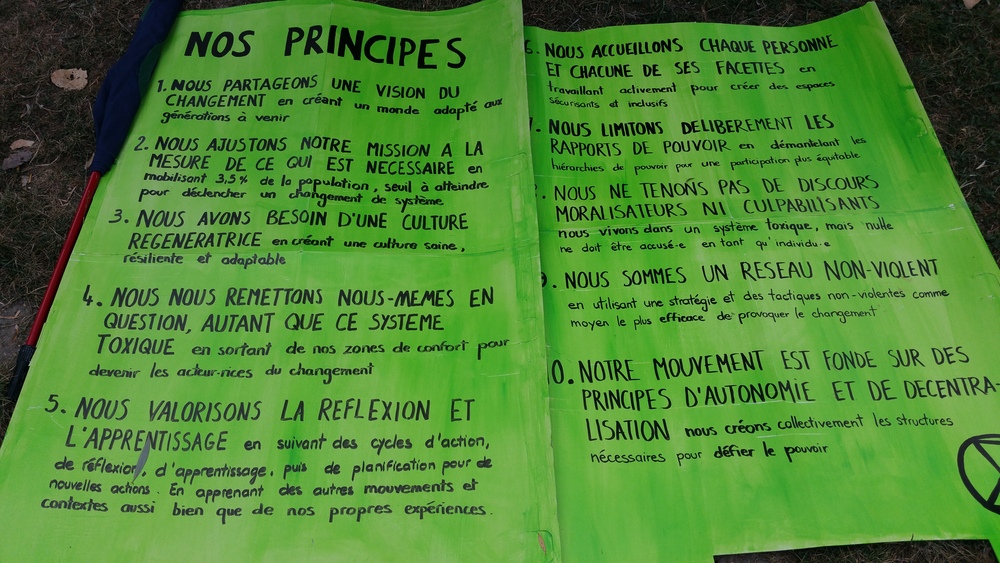 NOS PRINCIPES
1. NOUS PARTAGEONS UNE VISION DU
CHANGEMENT en créant un monde adapté aux
générations à venir
2. NOUS AJUSTONS NOTRE MISSION A LA
MESURE DE CE QUI EST NECESSAIRE en
mobilisant 3,5% de la population, seuil à atteindre
pour déclencher un changement de système
3. NOUS AVONS BESOIN D'UNE CULTURE
REGENERATRICE en créant une culture saine,
résiliente et adaptable
4. NOUS NOUS REMETTONS NOUS-MEMES EN
QUESTION, AUTANT QUE CE SYSTEME
TOXIQUE en sortant de nos zones de confort pour
devenir les acteur·rices du changement
5. NOUS VALORISONS LA REFLEXION ET
L'APPRENTISSAGE en suivant des cycles d'action,
de réflexion, d'apprentissage, puis de planification pour de
nouvelles actions. En apprenant des autres mouvements et
contextes aussi bien que de nos propres expériences.
NOUS ACCUEILLONS CHAQUE PERSONNE
ET CHACUNE DE SES FACETTES en
travaillant activement pour créer des espaces
sécurisants et inclusifs
NOUS LIMITONS DELIBEREMENT LES
RAPPORTS DE POUVOIR en démantelant les
hiérarchies de pouvoir pour une participation plus équitable
NOUS NE TENONS PAS DE DISCOURS
MORALISATEURS NI CULPABILISANTS
nous vivons dans un système toxique, mais nulle
ne doit être accusé·e en tant qu'individu·e
9. NOUS SOMMES UN RESEAU NON-VIOLENT
en utilisant une stratégie et des tactiques non-violentes comme
moyen le plus efficace de provoquer le changement
0. NOTRE MOUVEMENT EST FONDE SUR DES
PRINCIPES D'AUTONOMIE ET DE DECENTRA-
LISATION nous créons collectivement les structures
nécessaires pour défier le pouvoir